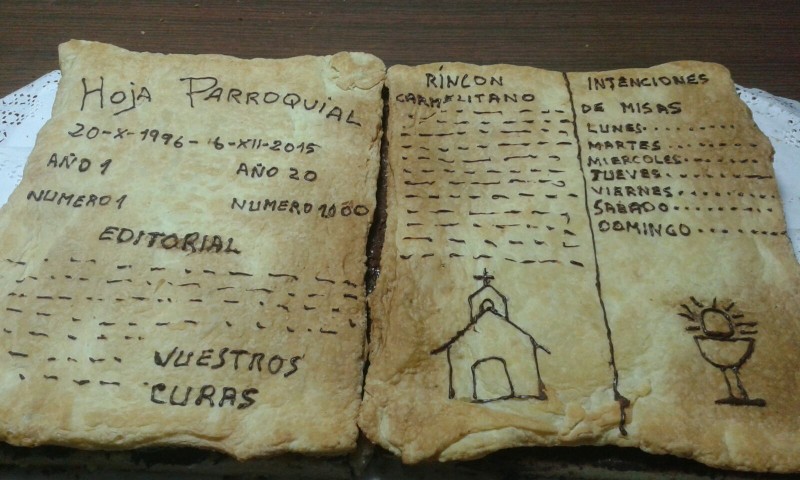 Hoja PARROQUiAL
20-X-1996- 6-XII-2015
AÑO 1 AÑO 20
NUMERO 1 NUMERO 1000
EDITORIAL
VUESTROS
CURAS
RÍNCON
CARMELITANO
INTENCIONES
DE MISAS
LUNES
MARTES
MIERCOLES
JUEVES
VIERNES
SABADO
DOMINGO